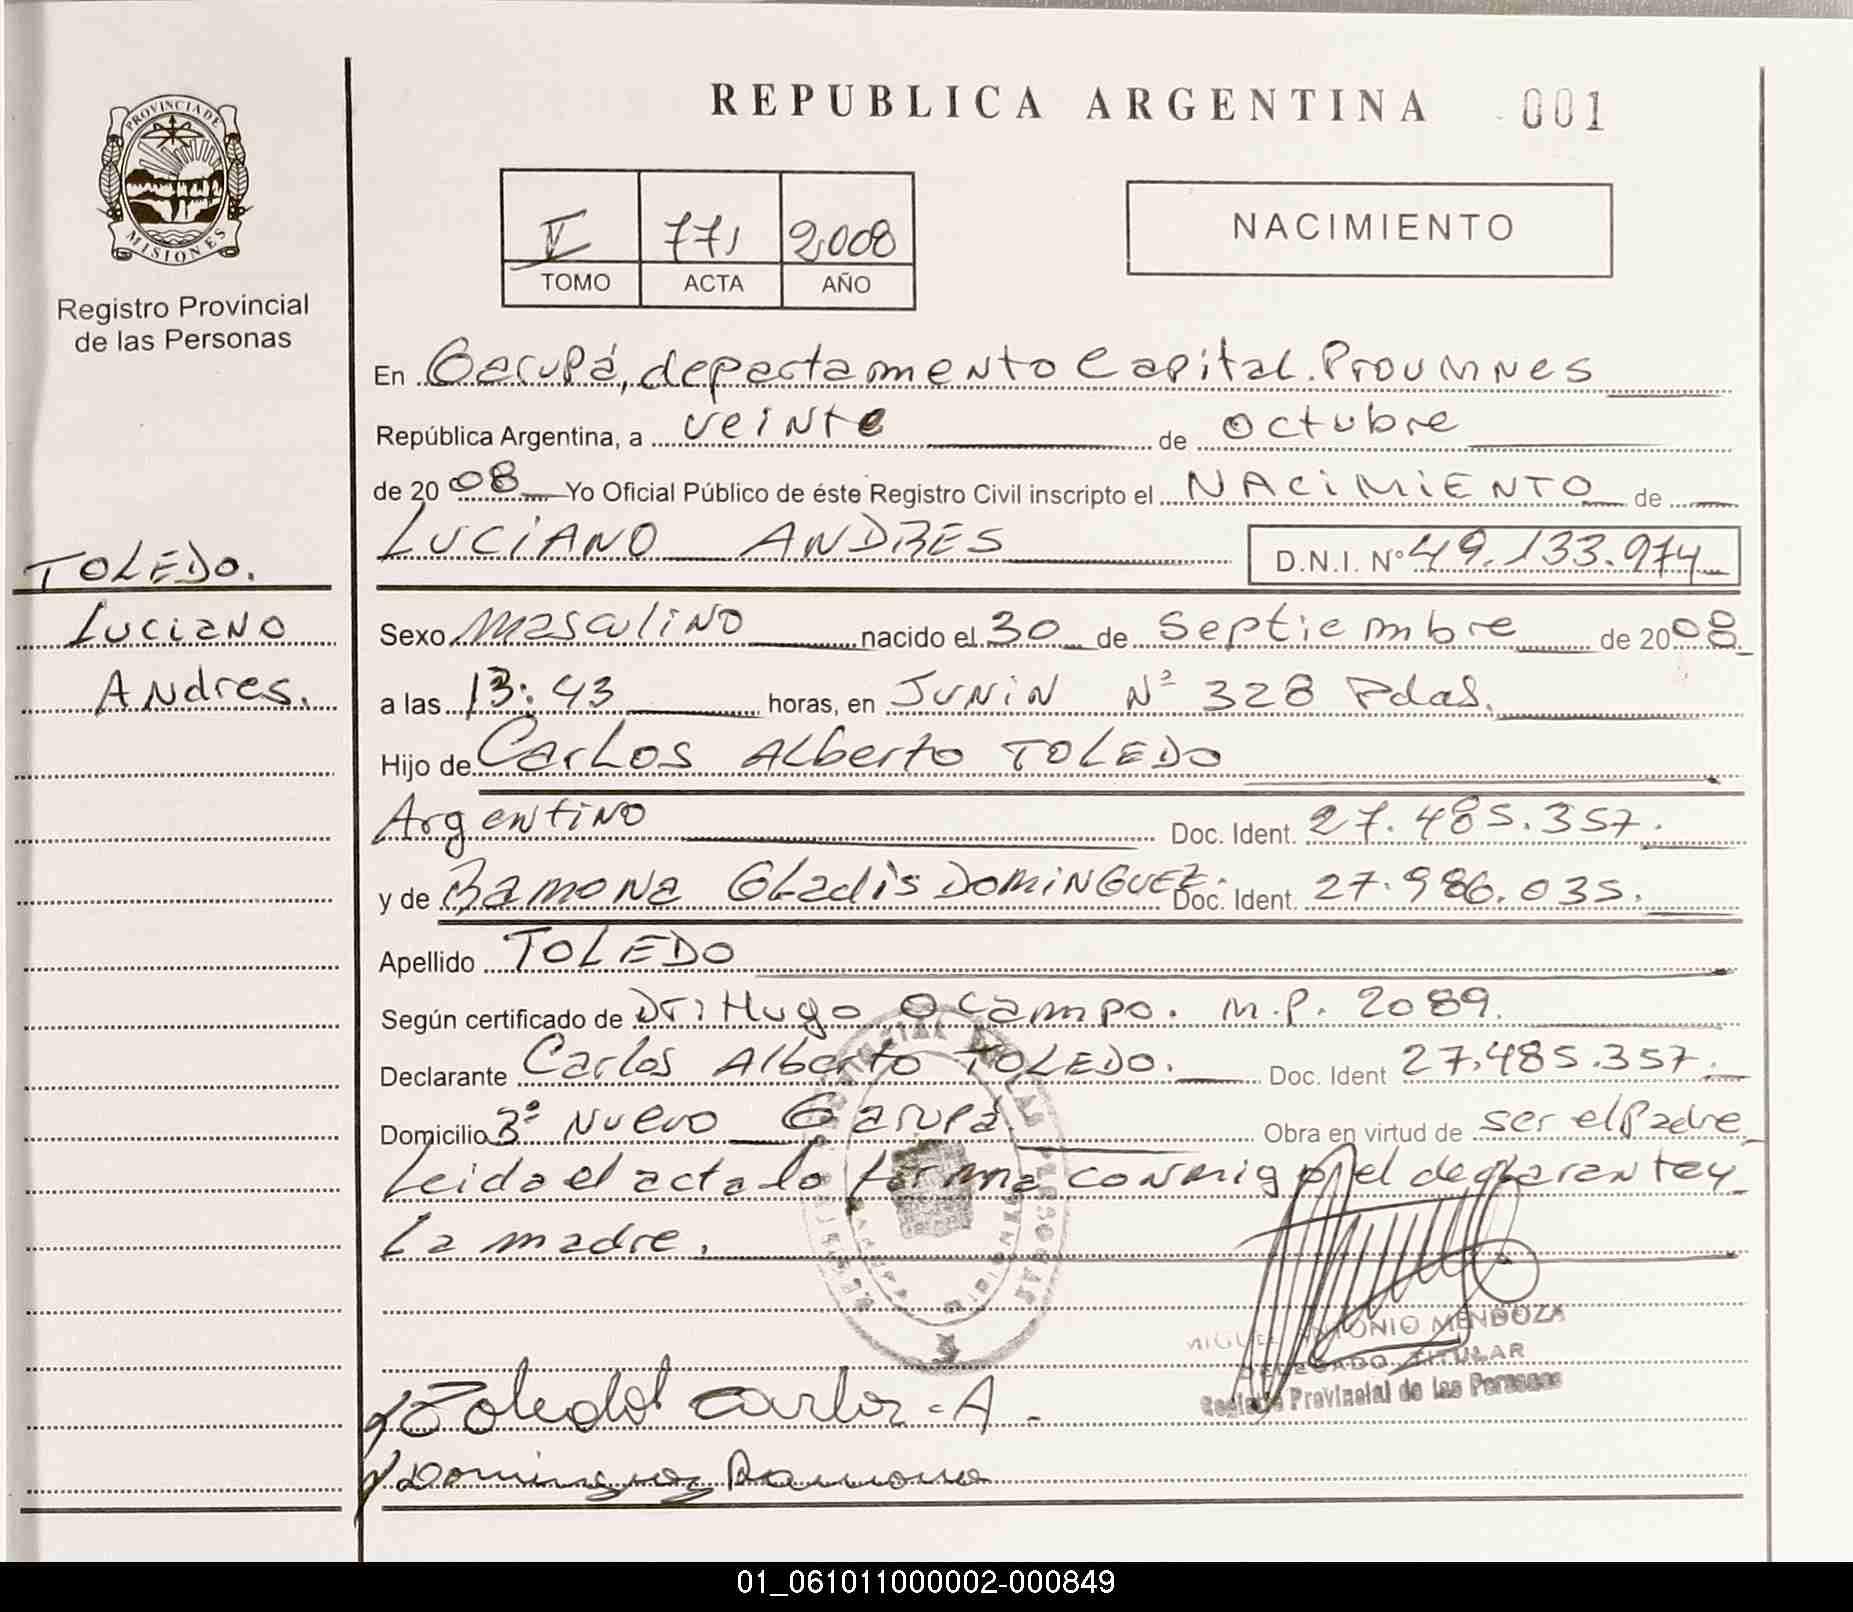 REPUBLICA ARGENTINA 001
PROVINCIA DE
MISIONES
Registro Provincial
de las Personas
V 771 2.008
TOMO ACTA AÑO
NACIMIENTO
En Garupá, departamento Capital. Prov Mnes
República Argentina, a veinte de octubre
de 2008 Yo Oficial Público de éste Registro Civil inscripto el NACIMIENTO de
LUCIANO ANDRES D.N.I. Nº 49.133.974
TOLEDO.
Luciano
Andres.
Sexo masculino nacido el 30 de Septiembre de 2008
a las 13:43 horas, en JUNIN Nº 328 Pdas.
Hijo de Carlos Alberto TOLEDO
Argentino Doc. Ident. 27.485.357.
y de Ramona Gladis DOMINGUEZ. Doc. Ident. 27.986.035.
Apellido TOLEDO
Según certificado de Dr: Hugo Ocampo. M.P. 2089.
Declarante Carlos Alberto TOLEDO. Doc. Ident 27.485.357.
Domicilio Bº Nuevo Garupá. Obra en virtud de ser el Padre
Leida el acta la firma conmigo el declarante y
La madre.
MIGUEL ANTONIO MENDOZA
DELEGADO TITULAR
Registro Provincial de las Personas
Toledo Carlos A.
Dominguez Ramona
01_061011000002-000849